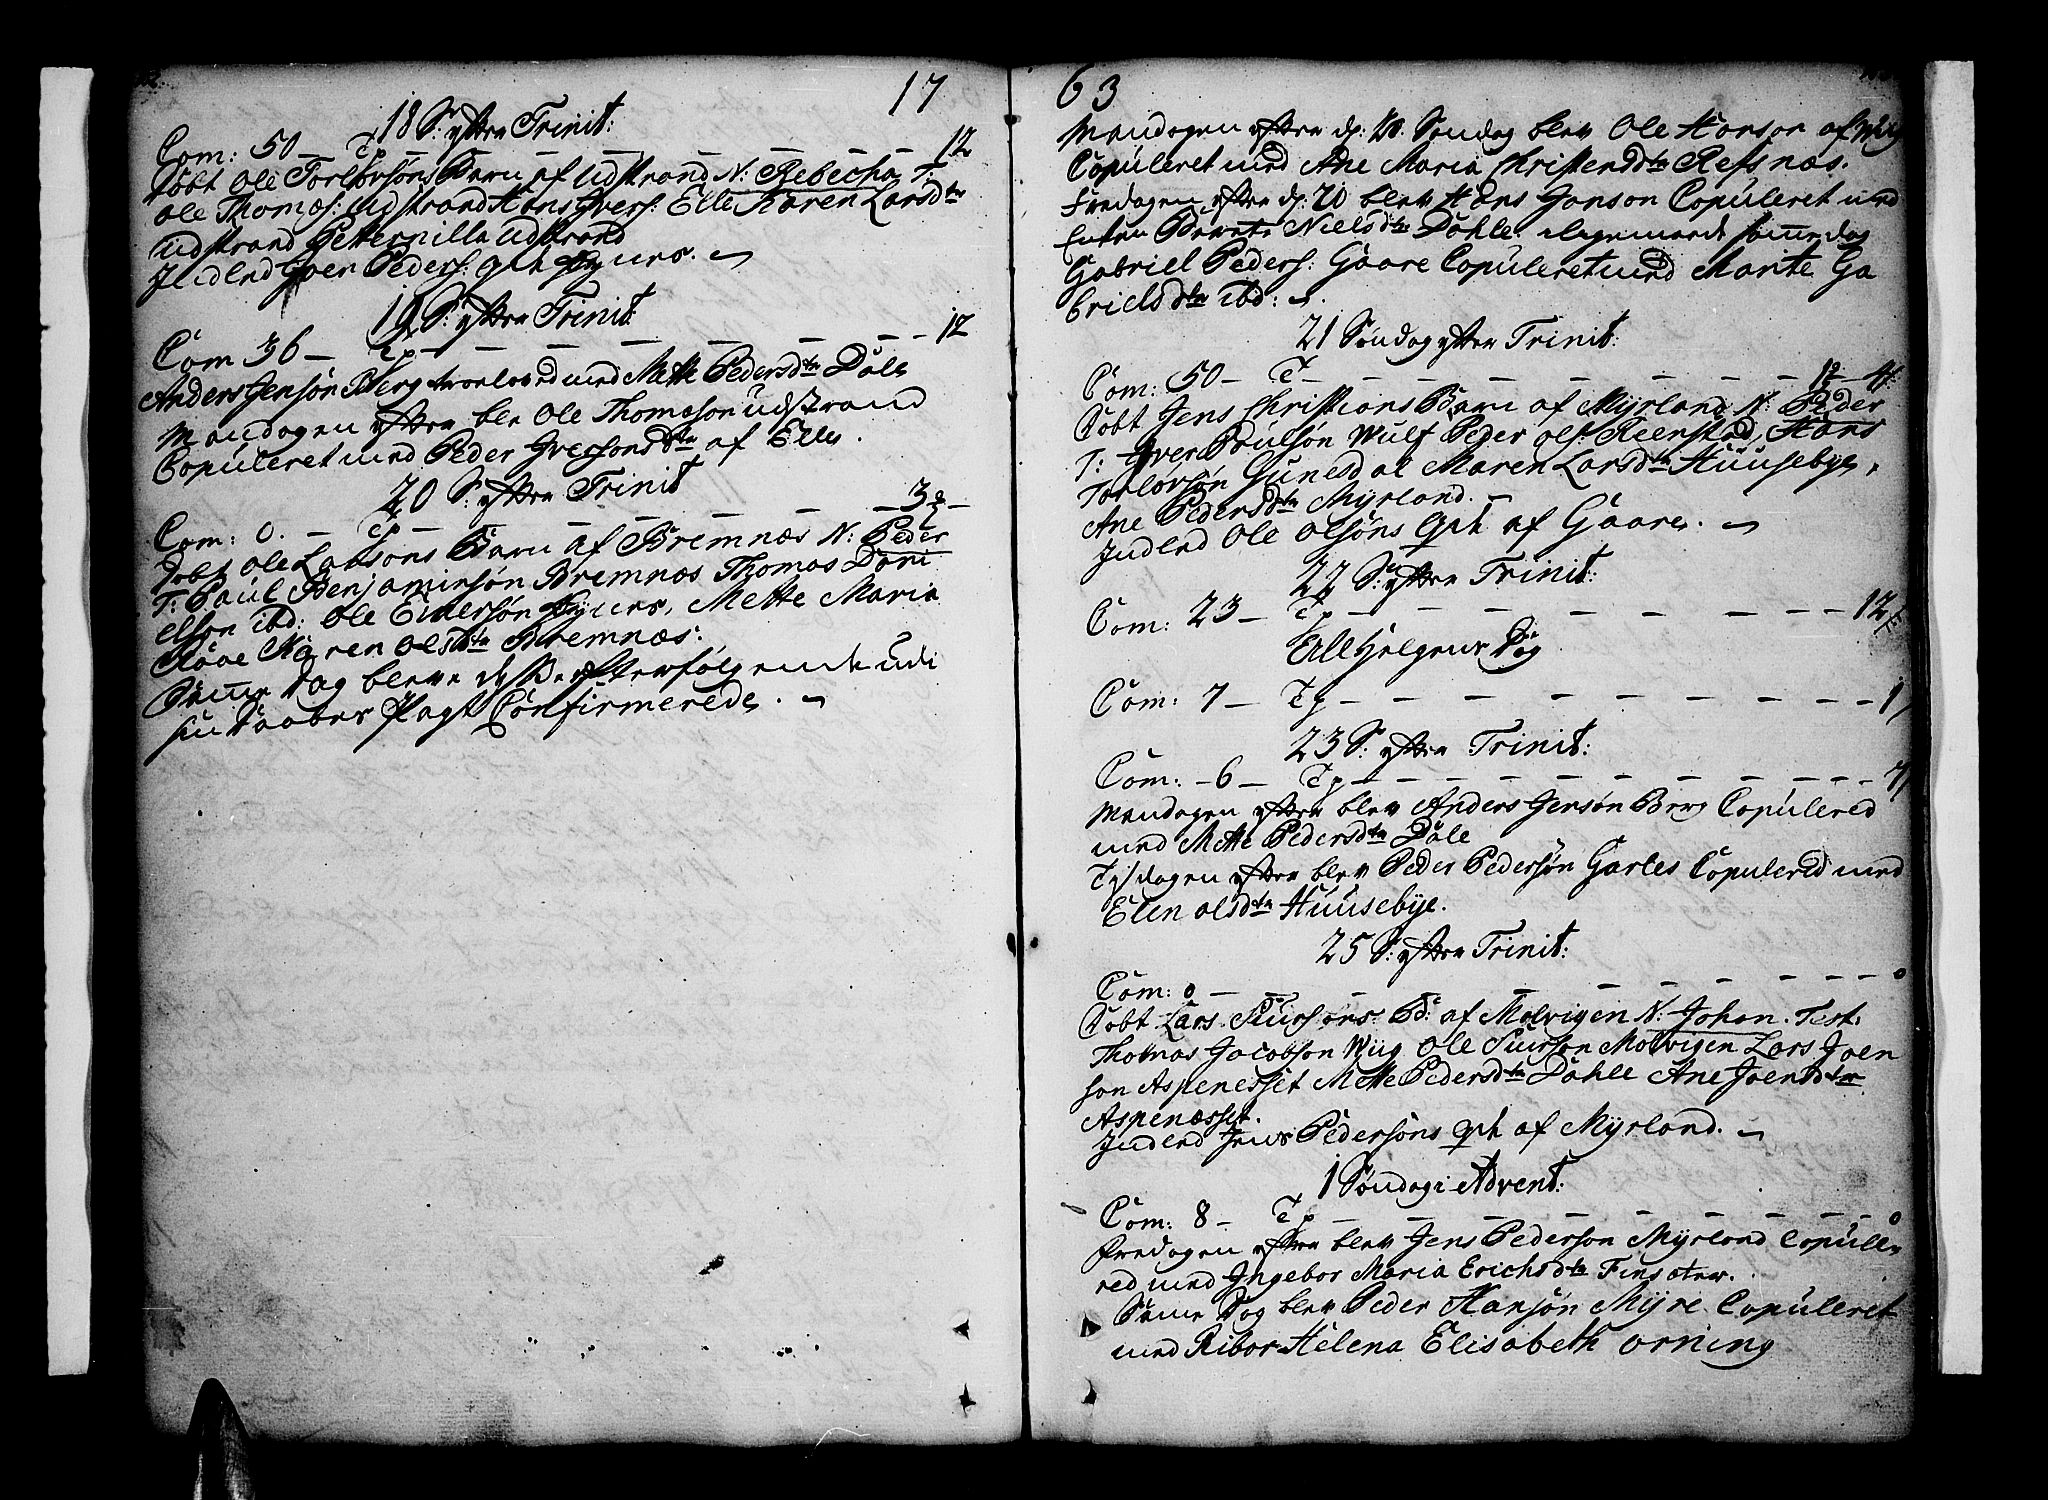 17
18 S: efter Trinit:
Com: 50 — Tp — — — — — — 12
Døbt Ole Torlovsøns Barn af Udstrand N: Rebecha T:
Ole Thomæs: Udstrand Hans Ivers: Elle Karen Larsdtr
Udstrand Petternilla Udstrand
Indled Joen Peders: qvh
19 S: efter Trinit:
Com 36 — Tp — — — — — — 12
Anders Jensøn Berg troeloved med Mette Pedersdtr Dale
Mandagen efter blev Ole Thomæson Udstrand
Copuleret med Peder Iversons dtr af Elle.
20 S: efter Trinit
Com: 0. — Tp — — — — — — 3
Døbt Ole Larsons Barn af Bremnæs N: Peder
T: Paul Benjaminsøn Bremnæs Thomas Dani
elson ibd: Ole Mette Maria
Karen Olsdtr Bremnæs:
Same Dag bleve disse efterfølgende udi
sin Daabes Pagt Confirmerede.
63
Mandagen efter d: 20. Søndag blev Ole Hanson af Wiig
Copuleret med Ane Maria Christensdtr Refsnæs.
Fredagen efter d: 20 blev Hans Janson Copuleret med
Enken Berete Nielsdtr Dahle. same dag
Gabriel Peders: Gaare Copuleret med Marite Ga
brielsdtr ibd:
21 Søndag efter Trinit:
Com: 50 — T — — — — — — 12
Døbt Jens Christians Barn af Myrland N: Peder
T: Iver Poulsøn Wulf Peder Ols: Reenstad, Hans
Torlovsøn Gunesdal Maren Larsdtr Huusebye,
Ane Pedersdtr Myrland.
Indled Ole Olsøns qvh af Gaare.
22 S: efter Trinit:
Com: 23 — Tp — — — — — — 12
All Helgens Dag
Com: 7 — Tp — — — — — — 1
23 S: efter Trinit:
Com: — 6 — Tp — — — — — — 7
Mandagen efter blev Anders Jensøn Berg Copulered
med Mette Pedersdtr Dale
Tisdagen efter blev Peder Pedersøn Garles Copulered med
Elen Olsdtr Huusebye.
25 S: efter Trinit:
Com: 0 — — — — — — 0
Døbt Lars Siursons Bd: af Molvigen N: Johan. Test:
Thomas Jacobson Wiig Ole Siurson Molvigen Lars Joen
son Aspenesset Mette Pedersdtr Dahle Ane Joensdtr
Aspenæsset.
Indled Jens Pedersøns qvh af Myrland.
1 Søndag i Advent:
Com: 8 — Tp — — — — — — 0
Fredagen efter blev Jens Pederson Myrland Copule
red med Ingebor Maria Erichsdtr Finsæter.
Same Dag blev Peder Hansøn Myre Copuleret
med Ribor Helena Elisabeth Orning